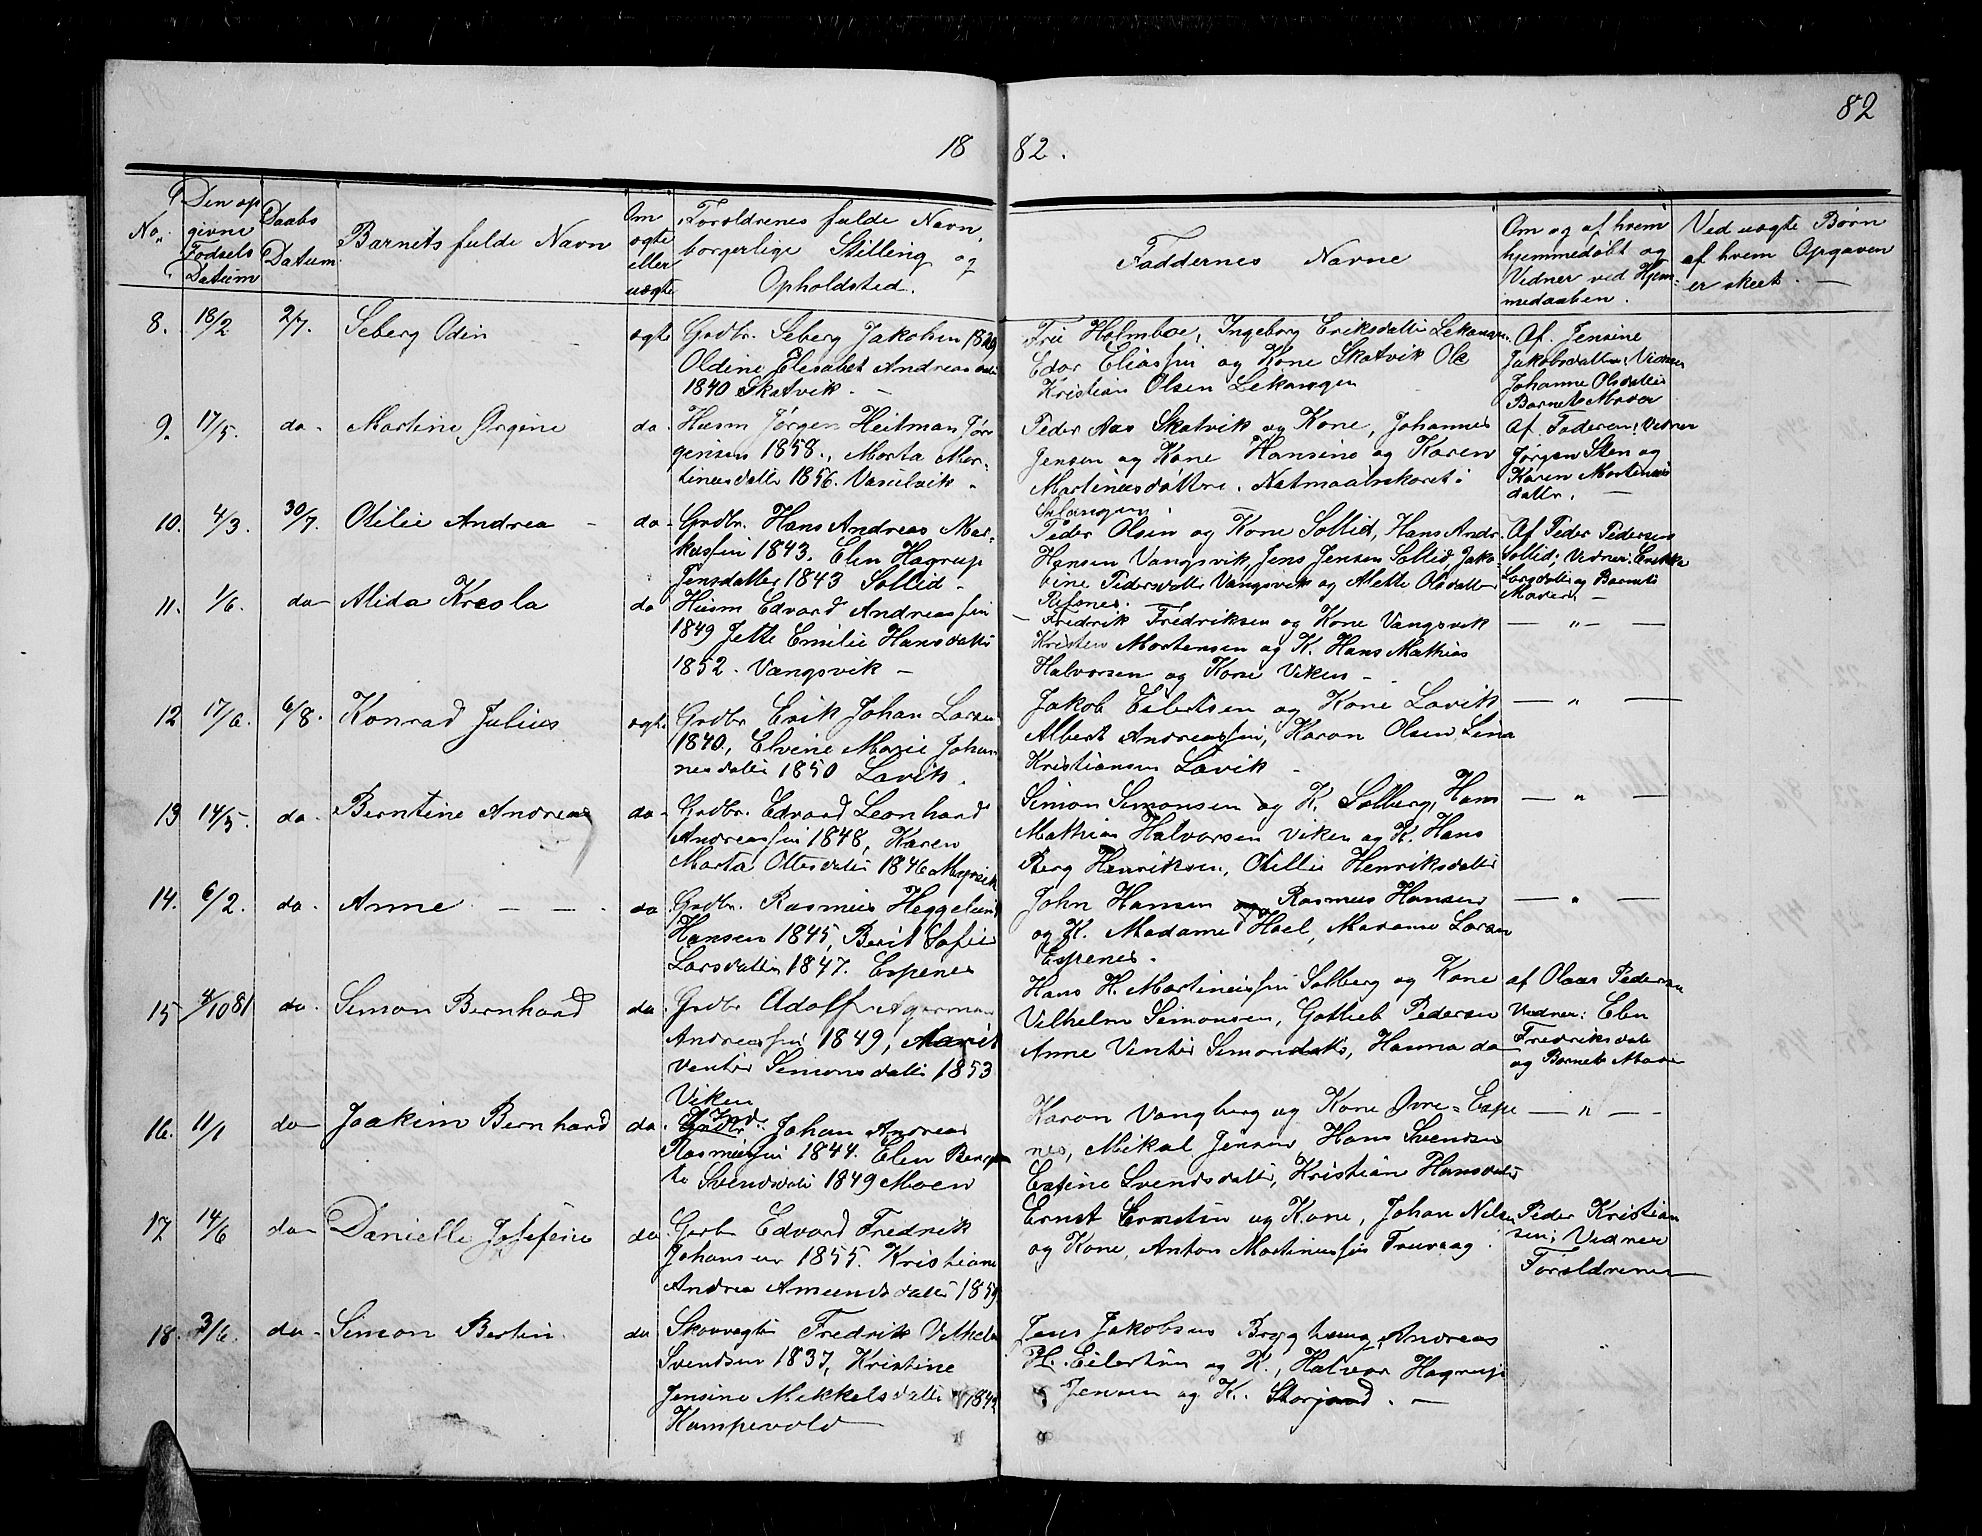 82
18 82.
No.
Den op
givne
Fødsels
Datum
Daabs
Datum
Barnets fulde Navn
Om
ægte
eller
uægte
Forældrenes fulde Navn,
borgerlige Stilling og
Opholdsted.
Faddernes Navne
Om og af hvem
hjemmedøbt og
Vidner ved Hjem-
medaaben.
Ved uægte Børn
af hvem Opgaven
er skeet.
8. 18/2 2/7. Seberg Odin ægte
Grdbr. Seberg Jakobsen
Oldine Elesabet Andreas
1840 Skatvik. –
Fru Holmboe, Ingeborg Eriksdatter
Edor Eliassen og Kone Skatvik Ole
Kristian Olsen Lekangen
Af Jensine
Jakobsdatter; Vidner
Johanne Olsdatter
Barnets Moder
9. 17/5. do. Martine Jørgine do.
Husm Jørgen Heitman Jør
gensen 1858., Marta Mar-
tinusdatter 1856. Vasilvik.
Peder Aas Skatvik og Kone, Johannes
Jensen og Kone Hansine og Karen
Martinusdøttre. Natmaalsskaret i
Salangen.
Af Faderen; Vidner
Jørgen Sten og
Karen Martinus
datter. –
10. 4/3. 30/7. Otilie Andrea – do.
Grdbr. Hans Andreas Mar-
kussen 1843. Elen Hagrup
Jensdatter 1843 Sollid.
Peder Olsen og Kone Sollid, Hans Andr.
Hansen Vangsvik, Jens Jensen Sollid, Jako-
bine Pedersdatter Vangsvik og Alette Olsdatter
Af Peder Pedersen
Sollid; Vidner:
Larsdatter og Barnets
Moder. –
11. 1/6. do Alida Kreola do
Husm Edvard Andreassen
1849 Jette Emilie Hansdatter
1852. Vangsvik –
– Fredrik Fredriksen og Kone Vangsvik
Kristen Mortensen og K. Hans Mathias
Halvorsen og Kone Viken –
— " —
12 17/6. 6/8. Konrad Julius ægte
Grdbr Erik Johan Larsen
1840, Elvine Marie Johan
nesdatter 1850 Lavik.
Jakob Eilertsen og Kone Lavik
Albert Andreassen, Karen Olsen, Lina
Kristiansen Lavik –
— " —
13 14/5. do. Berntine Andrea do.
Grdbr. Edvard Leonhard
Andreassen 1848, Karen
Marta Ottesdatter 1846
Simon Simonsen og K. Solberg, Hans
Mathias Halvorsen Viken og K. Hans
Berg Henriksen, Otillie Henriksdatter
— " —
14. 6/2. do. Anne – – do
Grdbr. Rasmus Heggelund
Hansen 1845, Berit Sofie
Larsdatter 1847. Espenes
John Hansen og Rasmus Hansen
og K. Madame Hoel, Madame Larsen
Espenes.
— " —
15 4/10 81 do. Simon Bernhard do.
Grdbr Adolf
Andreassen 1849, Marit
Simonsdatter 1853
Viken
Hans H. Martinussen Solberg og Kone
Vilhelm Simonsen, Gotlieb Pedersen
Anne Simonsdatter, Hanna do
af Olaus Pedersen
Vidner: Elen
Fredriksdatter
og Barnets Moder
16. 11/1 do Joakim Bernhard do.
Grdbr. Johan Andreas
Rasmussen 1844. Elen
Svendsdatter 1849 Moen
Karon Vangberg og Kone Øvre=Espe
nes, Mikal Jensen, Hans Svendsen
Svendsdatter, Kristian Hansdatter
— " —
17 14/6 do Danielle Josefine do
Edvard Fredrik
Johansen 1855. Kristiane
Andrea Amundsdatter 1859
Ernst Erntsen og Kone, Johan Nilsen
og Kone, Anton Martinussen
Peder Kristian
sen; Vidner
Forældrene
18. 3/6. do. Simon Bertin. do
Skovvogter Fredrik Vilhelm
Svendsen 1837, Kristine
Jensine Mikkelsdatter
Kampevold
Jens Jakobsen Brygghaug, Andreas
H. Eilertsen og K., Halvor Hagrup
Jensen og K. Storjord. –